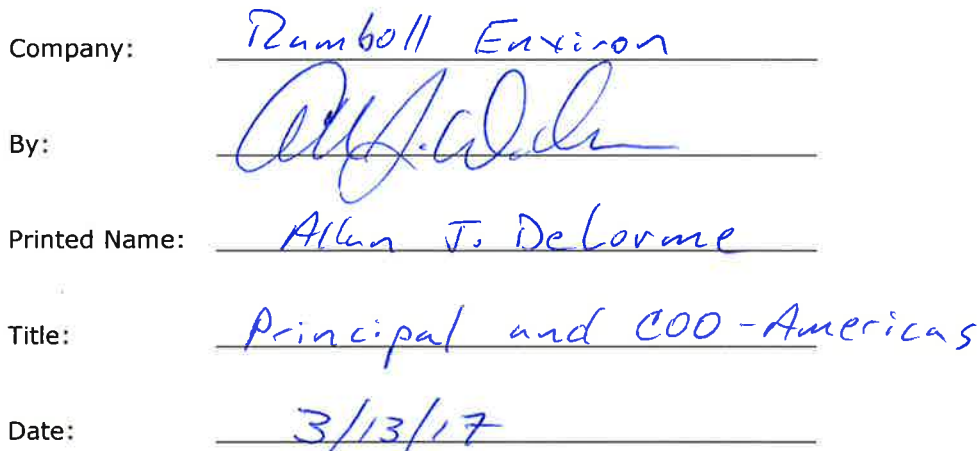 Company: Ramboll Environ
By:
Printed Name: Allan J. DeLorme
Title: Principal and COO - Americas
Date: 3/13/17